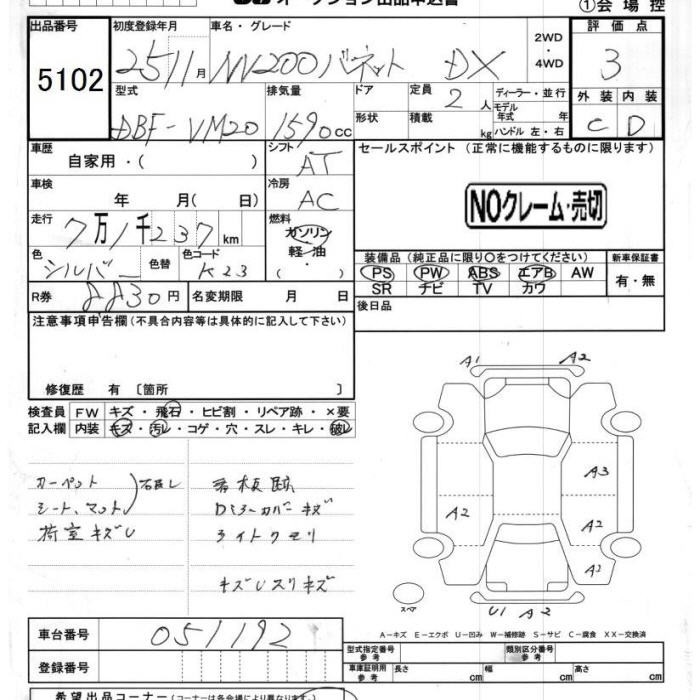 オークション出品申込書
①会場控
出品番号 初度登録年月 車名・グレード 評価点
5102
25 11月 NV200バネット DX 2WD・4WD 3
型式 排気量 ドア 定員 ディーラー・並行 外装 内装
DBF-VM20 1590cc 形状 積載 2人 kg モデル年式 年 ハンドル 左・右 C D
車歴 シフト セールスポイント (正常に機能するものに限ります)
自家用・( ) AT
車検 冷房
年 月( 日) AC
NOクレーム・売切
走行 燃料
7万1千237km ガソリン
軽油
( )
色 色替 色コード 装備品 (純正品に限り○をつけてください) 新車保証書
シルバー K23 PS PW ABS エアB AW 有・無
SR ナビ TV カワ
R券 8830円 名変期限 月 日 後日品
注意事項申告欄(不具合内容等は具体的に記入して下さい)
修復歴 有 〔箇所 〕
検査員 FW キズ・飛石・ヒビ割・リペア跡・×要
記入欄 内装 キズ・汚レ・コゲ・穴・スレ・キレ・破レ
カーペット
シート、マット
荷室キズU
看板跡
Dミラーカバーキズ
ライトクモリ
キズUスリキズ
A1 A2
A3
A2 A2
A1
スペア U1 A2
A-キズ E-エクボ U-凹み W-補修跡 S-サビ C-腐食 XX-交換済
車台番号 051192
型式指定番号 参考 類別区分番号 参考
登録番号
車庫証明用 参考 長さ cm 幅 cm 高さ cm
希望出品コーナー(コーナー名は各会場により異なります)